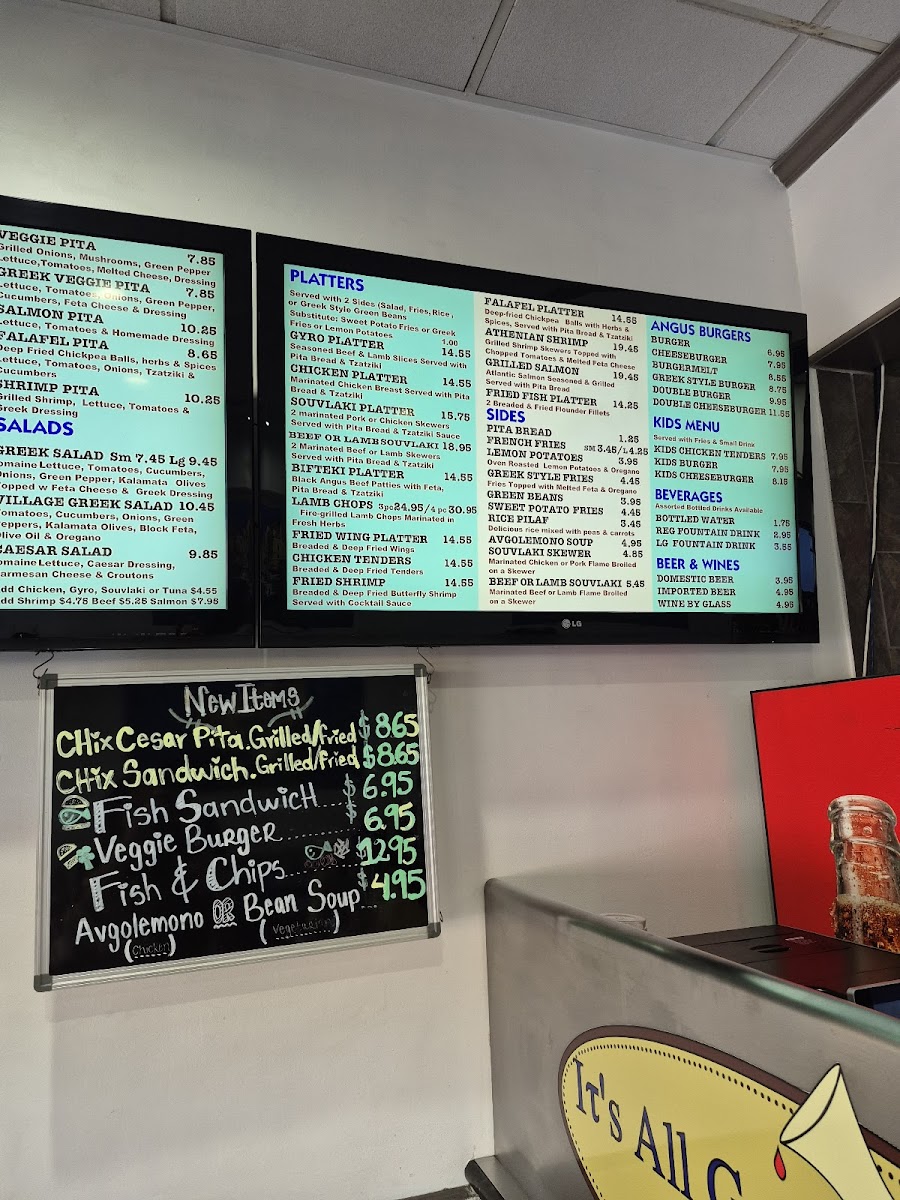 VEGGIE PITA 7.85
Grilled Onions, Mushrooms, Green Pepper
Lettuce,Tomatoes, Melted Cheese, Dressing
GREEK VEGGIE PITA 7.85
Lettuce, Tomatoes, Onions, Green Pepper,
Cucumbers, Feta Cheese & Dressing
SALMON PITA 10.25
Lettuce, Tomatoes & Homemade Dressing
FALAFEL PITA 8.65
Deep Fried Chickpea Balls, herbs & Spices
Lettuce, Tomatoes, Onions, Tzatziki &
Cucumbers
SHRIMP PITA 10.25
Grilled Shrimp, Lettuce, Tomatoes &
Greek Dressing
SALADS
GREEK SALAD Sm 7.45 Lg 9.45
omaine Lettuce, Tomatoes, Cucumbers,
Onions, Green Pepper, Kalamata Olives
Topped w Feta Cheese & Greek Dressing
VILLAGE GREEK SALAD 10.45
Tomatoes, Cucumbers, Onions, Green
Peppers, Kalamata Olives, Block Feta,
Olive Oil & Oregano
CAESAR SALAD 9.85
omaine Lettuce, Caesar Dressing,
Parmesan Cheese & Croutons
dd Chicken, Gyro, Souvlaki or Tuna $4.55
dd Shrimp $4.75 Beef $5.25 Salmon $7.95
PLATTERS
Served with 2 Sides (Salad, Fries, Rice,
or Greek Style Green Beans
Substitute: Sweet Potato Fries or Greek
Fries or Lemon Potatoes 1.00
GYRO PLATTER 14.55
Seasoned Beef & Lamb Slices Served with
Pita Bread & Tzatziki
CHICKEN PLATTER 14.55
Marinated Chicken Breast Served with Pita
Bread & Tzatziki
SOUVLAKI PLATTER 15.75
2 marinated Pork or Chicken Skewers
Served with Pita Bread & Tzatziki Sauce
BEEF OR LAMB SOUVLAKI 18.95
2 Marinated Beef or Lamb Skewers
Served with Pita Bread & Tzatziki
BIFTEKI PLATTER 14.55
Black Angus Beef Patties with Feta,
Pita Bread & Tzatziki
LAMB CHOPS 3pc24.95/4 pc 30.95
Fire-grilled Lamb Chops Marinated in
Fresh Herbs
FRIED WING PLATTER 14.55
Breaded & Deep Fried Wings
CHICKEN TENDERS 14.55
Breaded & Deep Fried Tenders
FRIED SHRIMP 14.55
Breaded & Deep Fried Butterfly Shrimp
Served with Cocktail Sauce
FALAFEL PLATTER 14.55
Deep-fried Chickpea Balls with Herbs &
Spices, Served with Pita Bread & Tzatziki
ATHENIAN SHRIMP 19.45
Grilled Shrimp Skewers Topped with
Chopped Tomatoes & Melted Feta Cheese
GRILLED SALMON 19.45
Atlantic Salmon Seasoned & Grilled
Served with Pita Bread
FRIED FISH PLATTER 14.25
2 Breaded & Fried Flounder Fillets
SIDES
PITA BREAD 1.25
FRENCH FRIES SM 3.45/L4.25
LEMON POTATOES 3.95
Oven Roasted Lemon Potatoes & Oregano
GREEK STYLE FRIES 4.45
Fries Topped with Melted Feta & Oregano
GREEN BEANS 3.95
SWEET POTATO FRIES 4.45
RICE PILAF 3.45
Delicious rice mixed with peas & carrots
AVGOLEMONO SOUP 4.95
SOUVLAKI SKEWER 4.85
Marinated Chicken or Pork Flame Broiled
on a Skewer
BEEF OR LAMB SOUVLAKI 5.45
Marinated Beef or Lamb Flame Broiled
on a Skewer
ANGUS BURGERS
BURGER 6.95
CHEESEBURGER 7.95
BURGERMELT 8.55
GREEK STYLE BURGER 8.75
DOUBLE BURGER 9.95
DOUBLE CHEESEBURGER 11.55
KIDS MENU
Served with Fries & Small Drink
KIDS CHICKEN TENDERS 7.95
KIDS BURGER 7.95
KIDS CHEESEBURGER 8.15
BEVERAGES
Assorted Bottled Drinks Available
BOTTLED WATER 1.75
REG FOUNTAIN DRINK 2.95
LG FOUNTAIN DRINK 3.55
BEER & WINES
DOMESTIC BEER 3.95
IMPORTED BEER 4.95
WINE BY GLASS 4.95
LG
New Items
CHix Cesar Pita. Grilled/fried $8.65
CHix Sandwich. Grilled/fried $8.65
Fish Sandwich... $6.95
Veggie Burger...... $6.95
Fish & Chips... $12.95
Avgolemono OR Bean Soup... $4.95
(Chicken) (Vegetarian)
It's All G